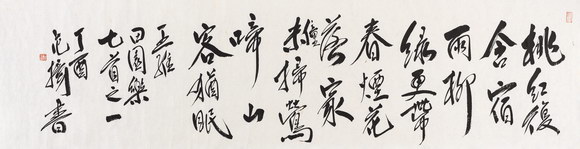 桃紅復
含宿
雨柳
綠更帶
春煙花
落家
掃鶯
啼山
客猶眠
王維
田園樂
七首之一
丁酉
書